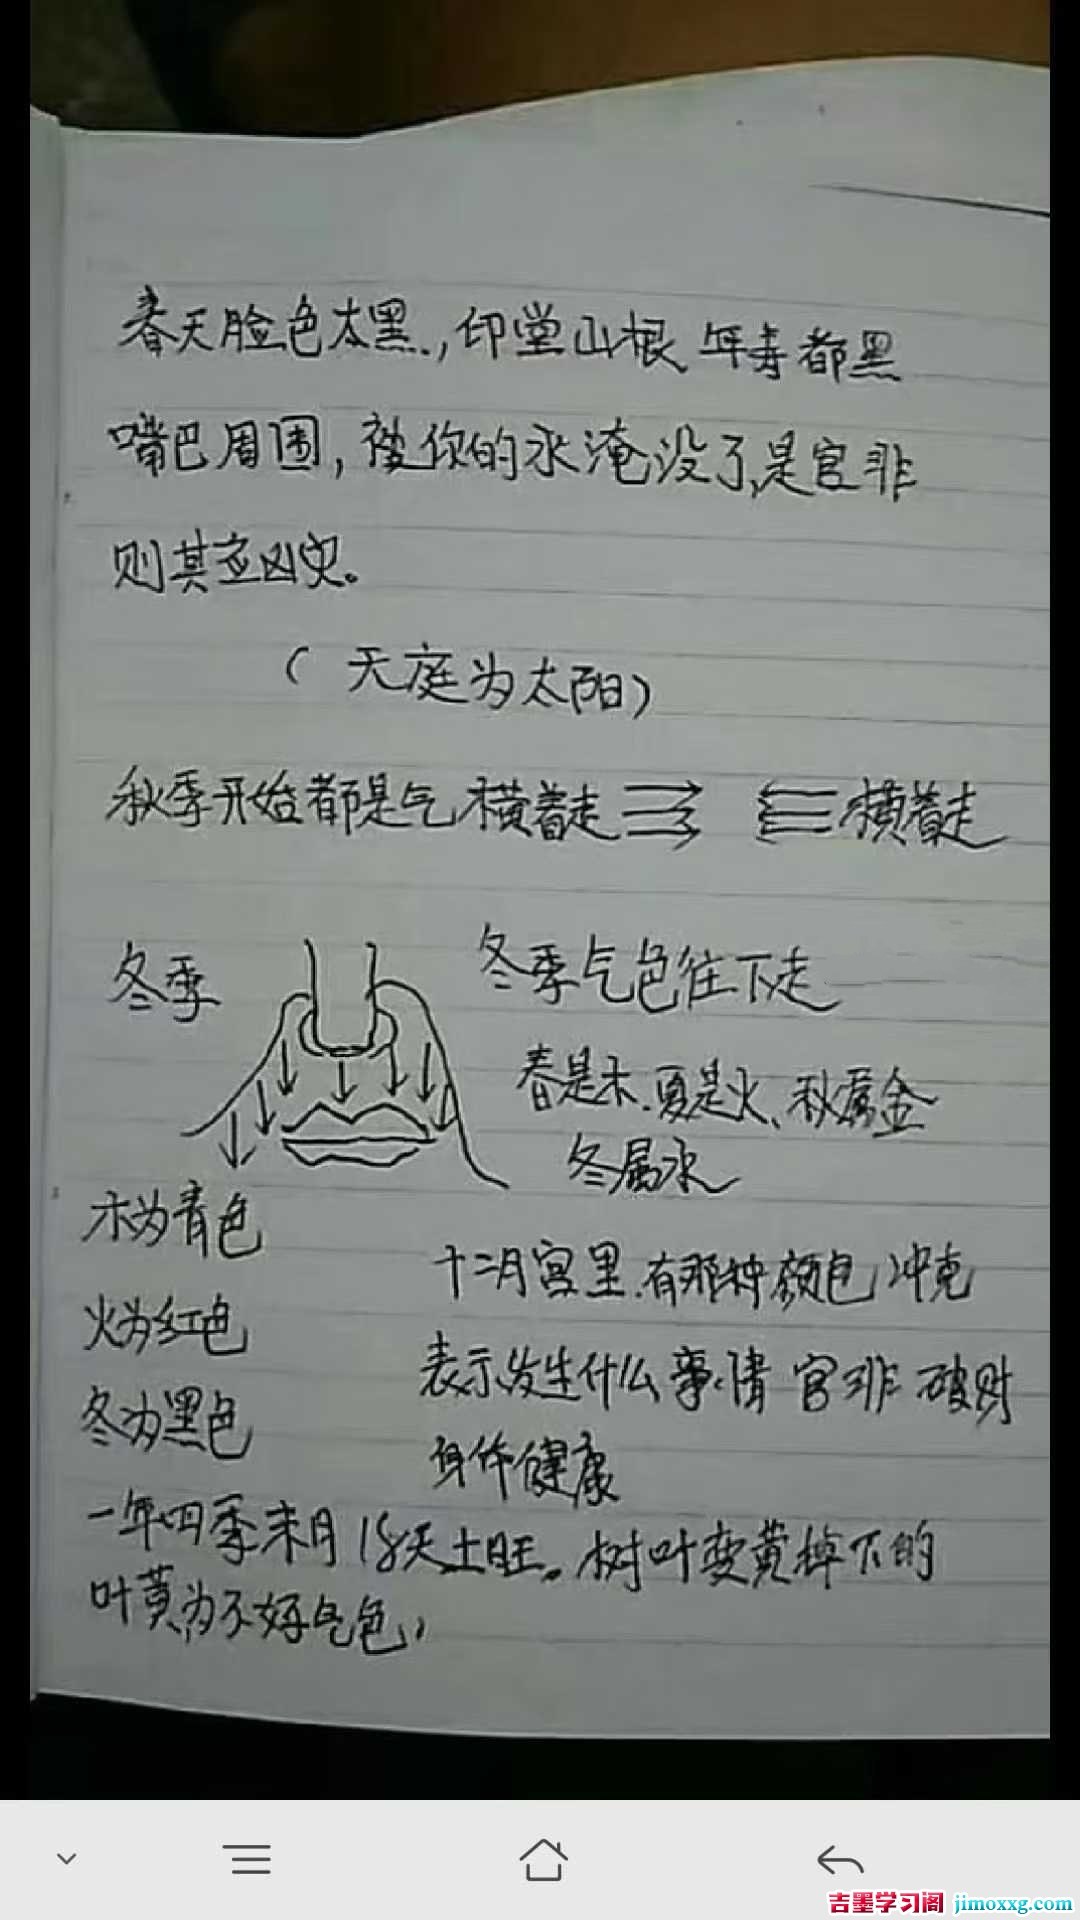 春天脸色太黑.，印堂山根 年寿都黑
嘴巴周围，被你的水淹没了，是官非
则其它凶灾。
（ 天庭为太阳）
秋季开始都是气横着走 横着走
冬季
冬季气色往下走
春是木.夏是火、秋属金
冬属水
木为青色
火为红色
冬为黑色
十二月宫里.有那种颜色冲克
表示发生什么事情 官非 破财
身体健康
一年四季末月18天土旺。树叶变黄掉下的
叶黄为不好气色，
吉墨学习阁 jimoxxg.com